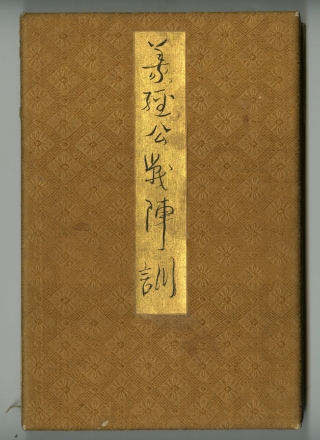 義經公戦陣訓